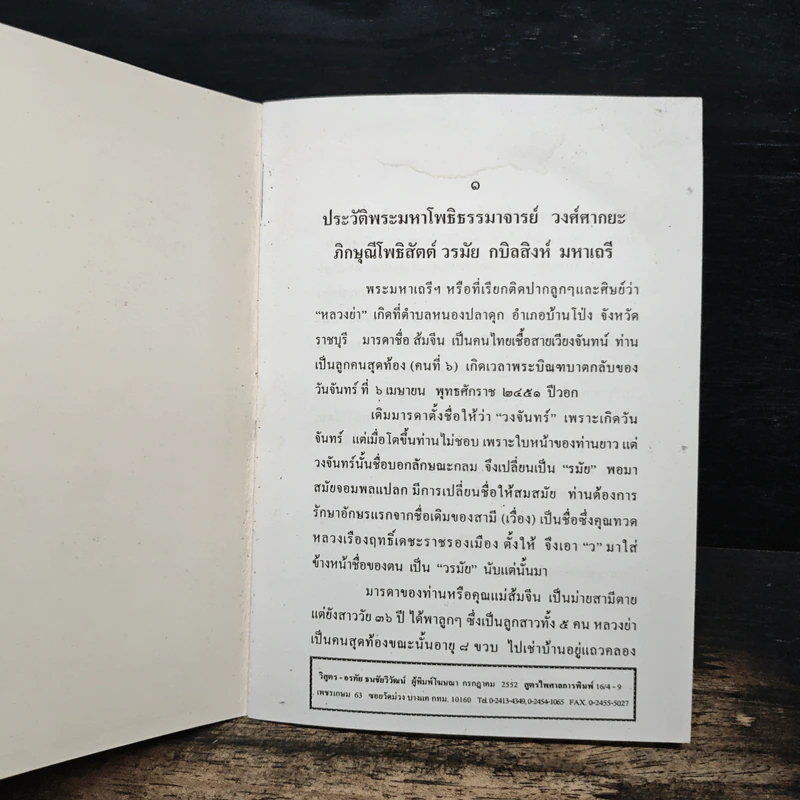 ๑
ประวัติพระมหาโพธิธรรมาจารย์ วงศ์ศากยะ
ภิกษุณีโพธิสัตต์ วรมัย กบิลสิงห์ มหาเถรี
พระมหาเถรีฯ หรือที่เรียกติดปากลูกๆและศิษย์ว่า
“หลวงย่า” เกิดที่ตำบลหนองปลาดุก อำเภอบ้านโป่ง จังหวัด
ราชบุรี มารดาชื่อ ส้มจีน เป็นคนไทยเชื้อสายเวียงจันทน์ ท่าน
เป็นลูกคนสุดท้อง (คนที่ ๖) เกิดเวลาพระบิณฑบาตกลับของ
วันจันทร์ ที่ ๖ เมษายน พุทธศักราช ๒๔๕๑ ปีวอก
เดิมมารดาตั้งชื่อให้ว่า “วงจันทร์” เพราะเกิดวัน
จันทร์ แต่เมื่อโตขึ้นท่านไม่ชอบ เพราะใบหน้าของท่านยาว แต่
วงจันทร์นั้นชื่อบอกลักษณะกลม จึงเปลี่ยนเป็น “รมัย” พอมา
สมัยจอมพลแปลก มีการเปลี่ยนชื่อให้สมสมัย ท่านต้องการ
รักษาอักษรแรกจากชื่อเดิมของสามี (เวื่อง) เป็นชื่อซึ่งคุณทวด
หลวงเรืองฤทธิ์เดชะราชรองเมือง ตั้งให้ จึงเอา “ว” มาใส่
ข้างหน้าชื่อของตน เป็น “วรมัย” นับแต่นั้นมา
มารดาของท่านหรือคุณแม่ส้มจีน เป็นม่ายสามีตาย
แต่ยังสาววัย ๓๖ ปี ได้พาลูกๆ ซึ่งเป็นลูกสาวทั้ง ๕ คน หลวงย่า
เป็นคนสุดท้องขณะนั้นอายุ ๘ ขวบ ไปเช่าบ้านอยู่แถวคลอง
วิสูตร - อรทัย ธนชัยวิวัฒน์ ผู้พิมพ์โฆษณา กรกฎาคม 2552 สูตรไพศาลการพิมพ์ 16/4 - 9
เพชรเกษม 63 ซอยวัดม่วง บางแค กทม. 10160 Tel. 0-2413-4349, 0-2454-1065 FAX. 0-2455-5027